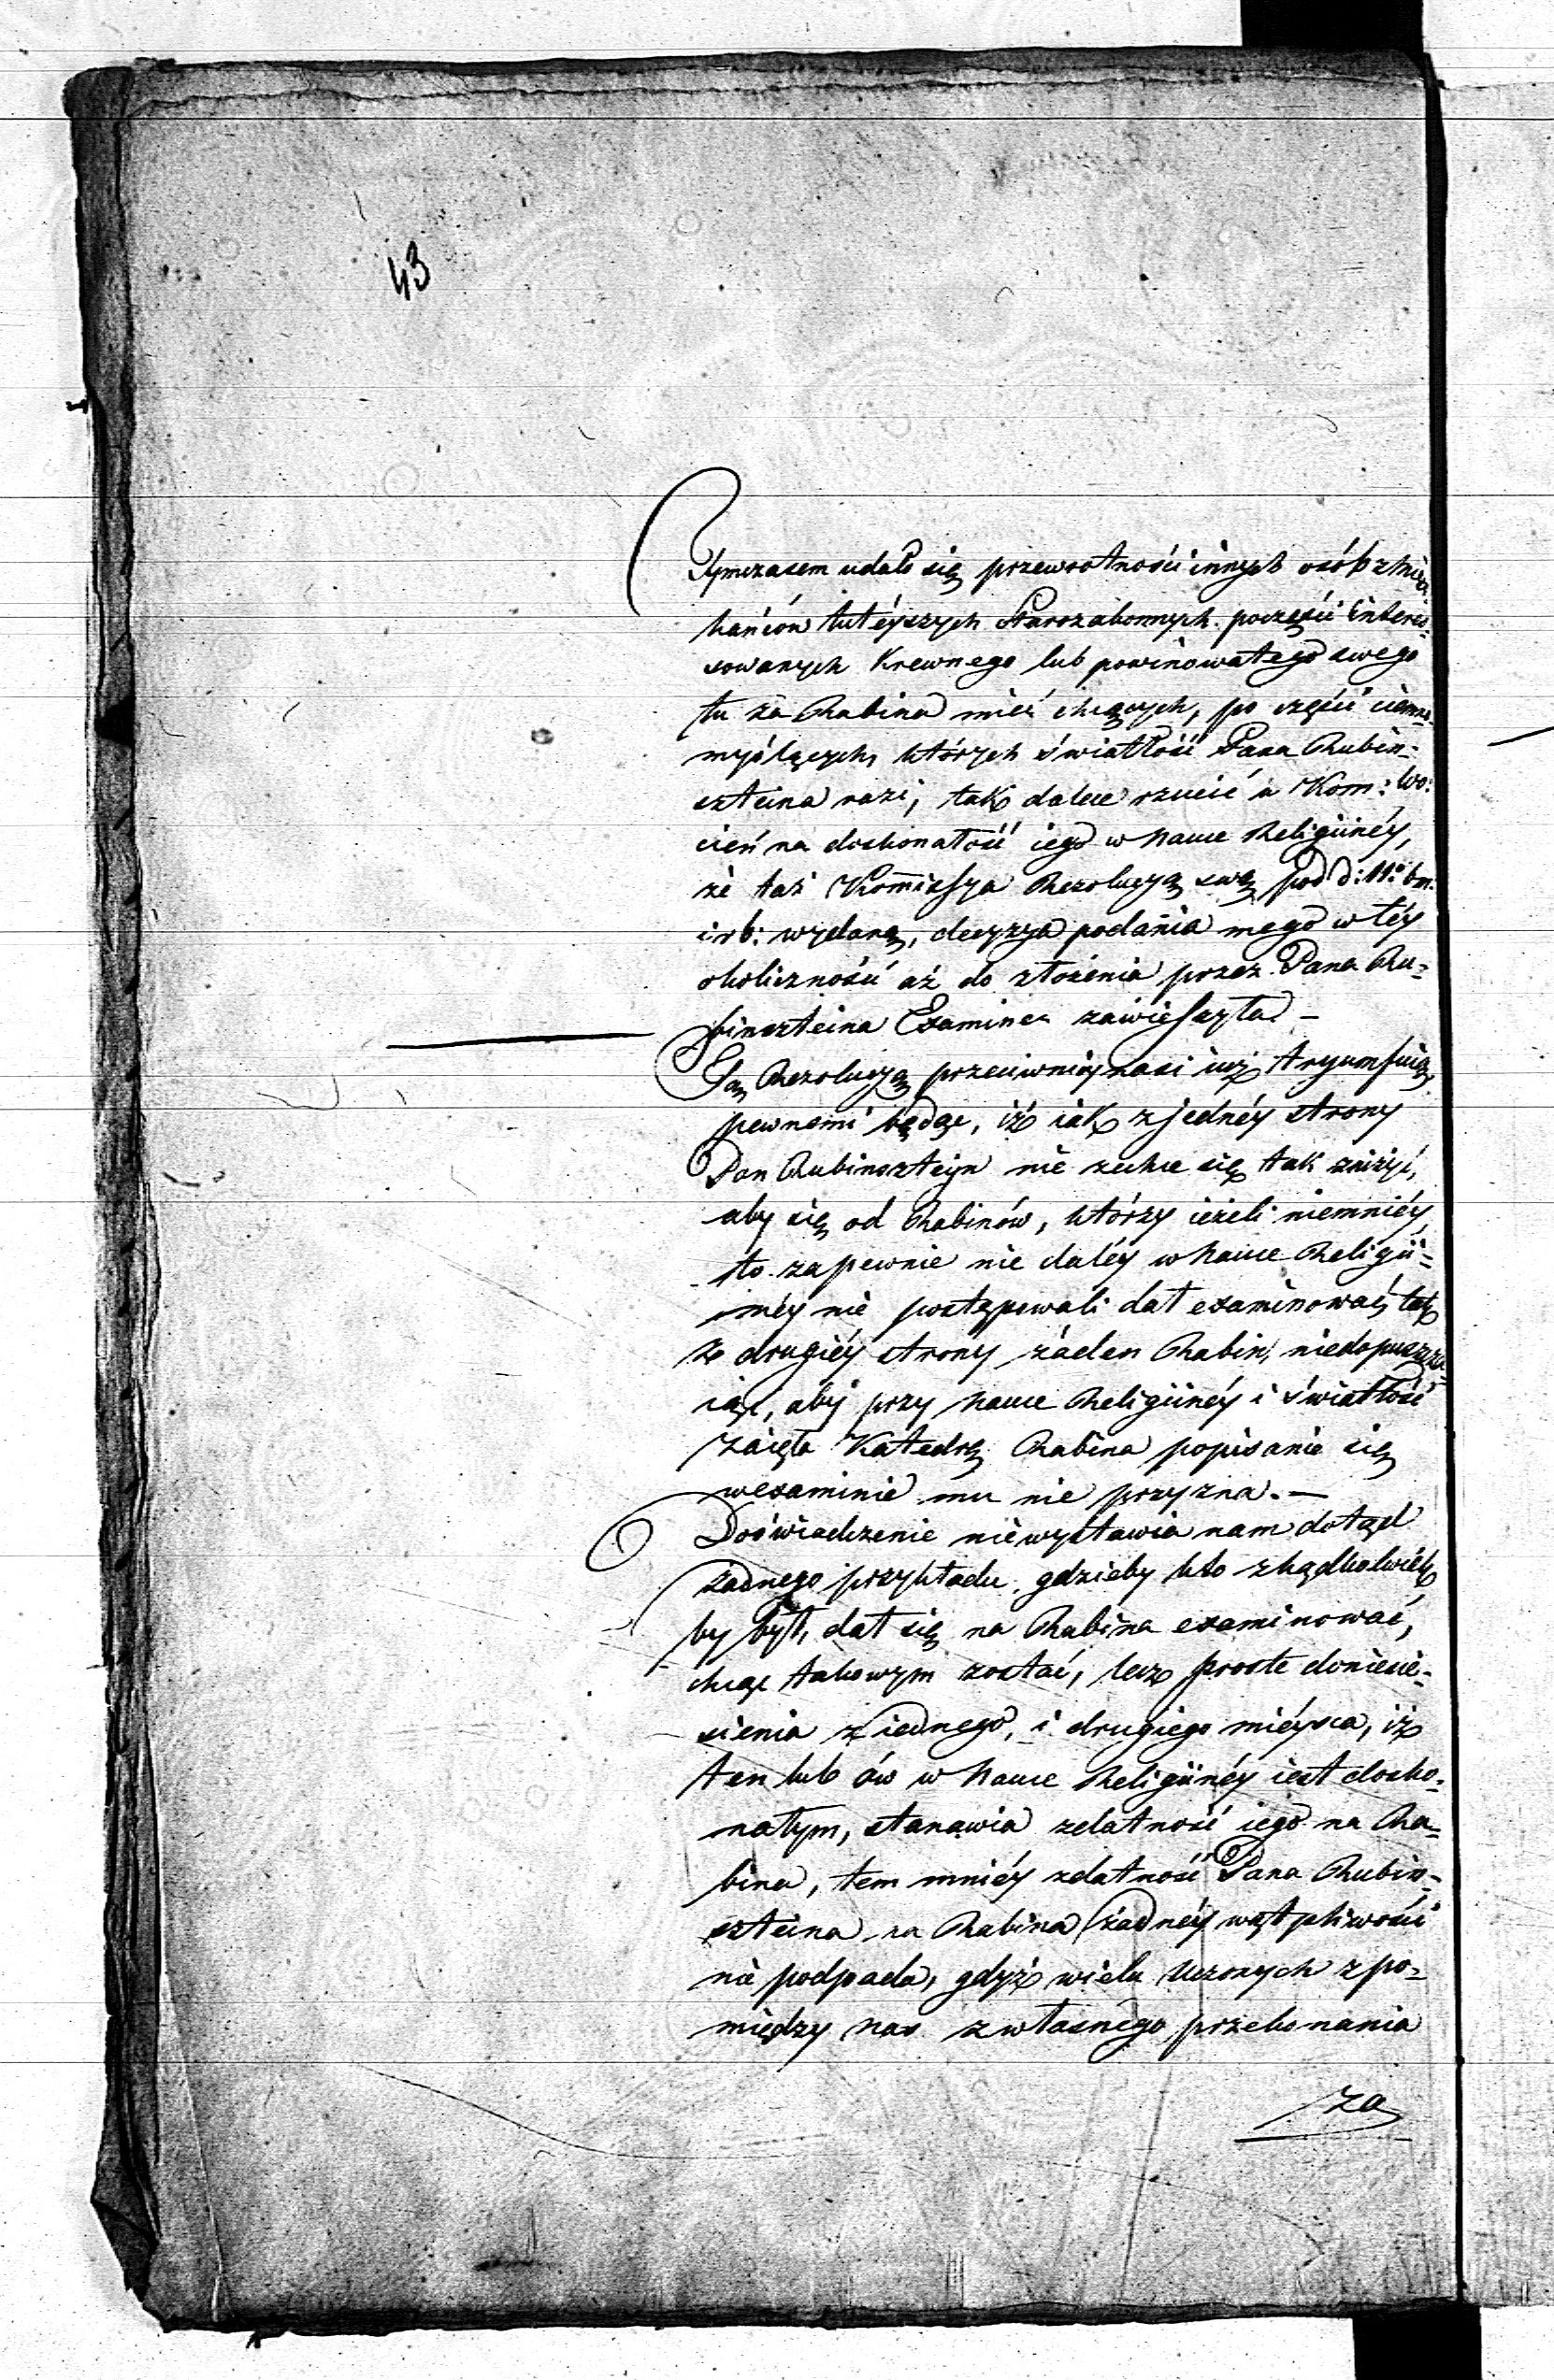 43
Tymczasem udało się przewrotności innych osób z miesz-
kańców tutéyszych Starozakonnych poczęści interes-
sowanych Krewnego lub powinowatego swego
tu za Rabina mieć chcących, po części ciemno-
myślących, których światłość Pana Rubin-
szteina razi, tak dalece rzucić u Kom: Wo:
cień na doskonałość iego w Nauce Religiinéy,
że taż Kommissya Rezolucyą swą pod d: 11º bm:
i rb: wydaną, decyzya podania mego w téy
okoliczności aż do złożenia przez Pana Ru-
binszteina Examinu zawiesiła. –
Tą Rezolucyą przeciwnicy nasi iuż tryumfuią,
pewnemi będąc, iż iak z jednéy strony
Pan Rubinsztejn nie zechce się tak zniżyć,
aby się od Rabinów, którzy ieżeli niemniéy,
to zapewnie nie daléy w Nauce Religii-
inéy nie postępowali dał examinować, tak
z drugiéy strony żaden Rabin, niedopuszcza-
iąc, aby przy Nauce Religiinéy i światłość
zaięła Katedrę Rabina popisanie się
w examinie mu nie przyzna. –
Doświadczenie niewystawia nam dotąd
żadnego przykładu, gdzieby kto zkądkolwiek
by był, dał się na Rabina examinować,
chcąc takowym zostać, lecz proste doniesie-
sienia z iednego, i drugiego miéysca, iż
ten lub ów w Nauce Religiinéy iest dosko-
nałym, stanawia zdatność iego na Ra-
bina, tem mniéy zdatność Pana Rubin-
szteina na Rabina żadnéy wątpliwości
nie podpada, gdyż wielu Uczonych z po-
między nas z własnégo przekonania
za